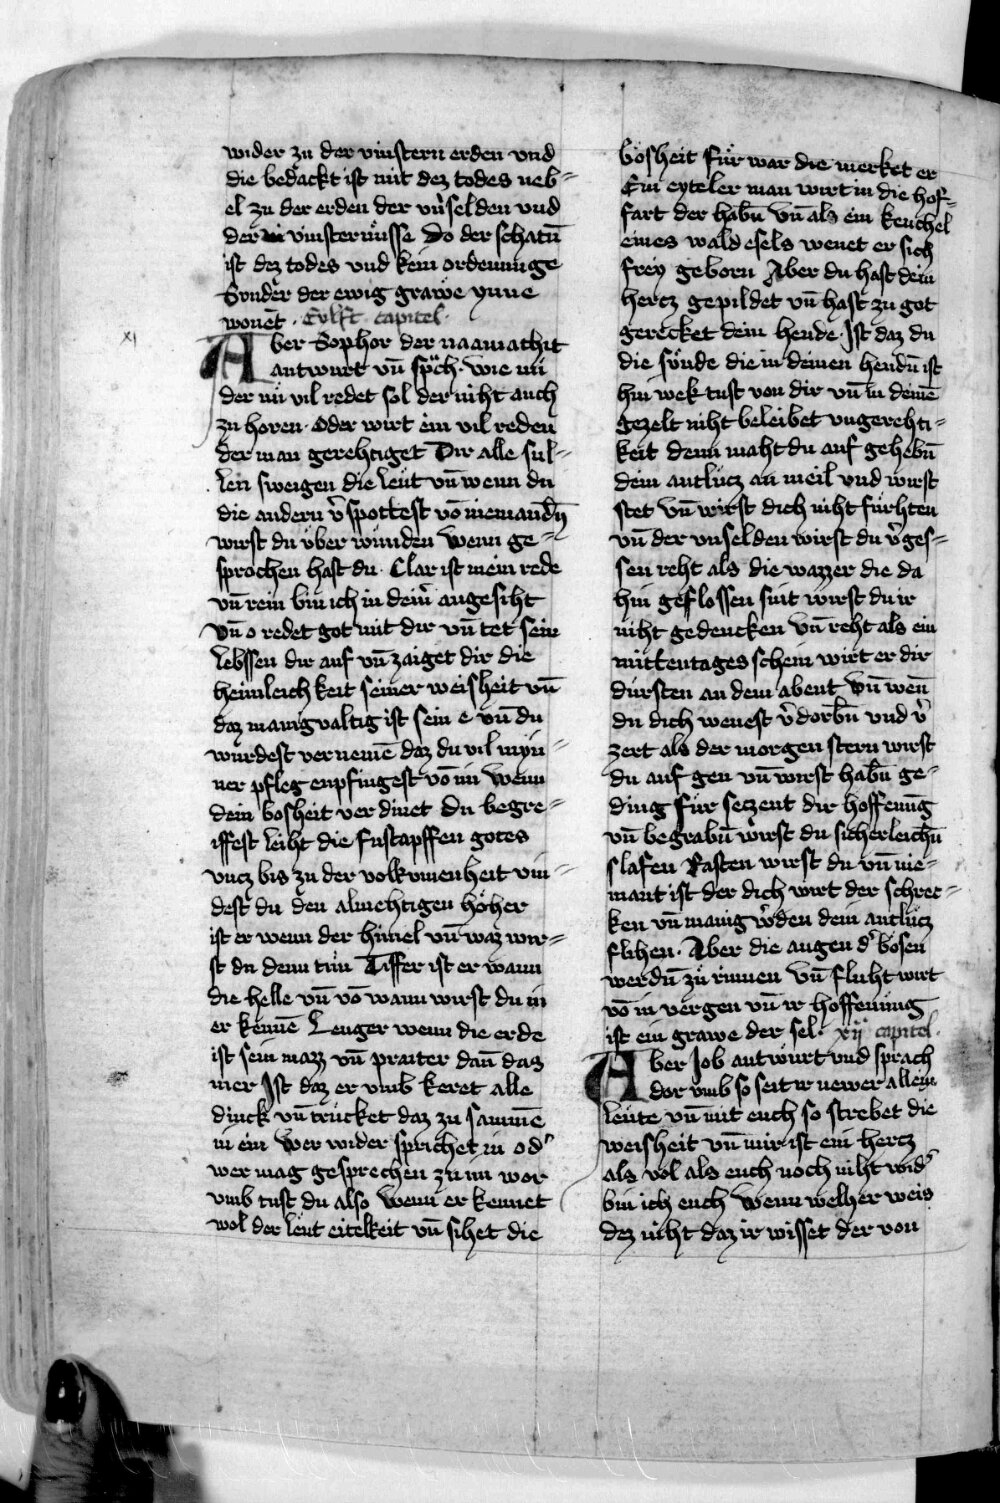 wider zu der vinstern erden vnd
die bedackt ist mit dez todes neb⸗
el zu der erden der vnselden vnd
der vinsternüsse Do der schatñ
ist dez todes vnd kein ordenunge
Sunder der ewig grawe ynne
wonet . Eylft capitel ·
XI
Aber Sophor der naamathit
antwurt vñ sp̈ch · wie nu
der nü vil redet sol der niht auch
zu horen · oder wirt ein vil reden
der man gerehtiget Dir alle sul⸗
len sweigen die leüt vñ wenn du
die andern v̉spottest võ niemandñ
wirst du vber wunden Wenn ge⸗
sprochen hast du · Clar ist mein rede
vñ rein bin ich in deim̉ angesiht
vñ o redet got mit dir vñ tet sein
lebssen dir auf vñ zaiget dir die
heimleich keit seiner weisheit vñ
daz manigualtig ist sein e vñ du
wurdest vernemē daz du vil myn⸗
ner pfleg enpfingest võ im Wenn
dein bosheit ver dinet Du begre⸗
iffest leiht die fustapffen gotes
vncz bis zu der volkumenheit vin⸗
dest du den almehtigen höher
ist er wenn der himel vñ waz wir⸗
st du denn tün Tiffer ist er wann
die helle vñ võ wann wirst du in
er kennē Lenger wenn die erde
ist sein mazz vñ praiter dañ daz
mer Ist daz er vmb keret alle
dinck vñ trucket daz zu sammē
in ein Wer wider sprichet in od̉
wer mag gesprechen zu im wor
vmb tust du also Wenn er kennet
wol der leüt eitelkeit vñ sihet die
bösheit für war die merket er
Ein eyteler man wirt in die hof⸗
fart der habñ vñ als ein keuchel
eines wald esels wenet er sich
frey geborn Aber du hast dein
hercz gepildet vñ hast zu got
gerecket dein hende · Ist daz du
die sünde die in deinen hendñ ist
hin wek tust von dir vñ in deinē
gezelt niht beleibet vngerehti⸗
keit denn maht du auf gehebñ
dein antlücz an meil vnd wirst
stet vñ wirst dich niht fürhten
vñ der vnselden wirst du v̉ges⸗
sen reht als die wazzer die da
hin geflossen sint wirst du ir
niht gedencken Vñ reht als ein
mittentages schein wirt er dir
dürsten an dem abent Vñ wen̄
du dich wenest v̉dorbñ vnd v̉
zert als der morgen stern wirst
du auf gen vñ wirst habñ ge⸗
ding für seczent dir hoffenūg
vñ begrabñ wirst du sicherleichñ
slafen Rasten wirst du vñ nie⸗
mant ist der dich wirt der schrec⸗
ken vñ manig w̉den dein antlücz
flihen · Aber die augen d̉ bösen
werdñ zü rinnen Vñ fluht wirt
võ in vergen vñ ir hoffenung
ist ein grawe der sel · xij capitel ·
Aber Job antwurt vnd sprach
dor vmb so seit ir newer allein
leüte vñ mit euch so strebet die
weisheit vñ mir ist ein hercz
als wol als euch noch niht wid̉
bin ich euch Wenn welher weis
dez niht daz ir wisset der von